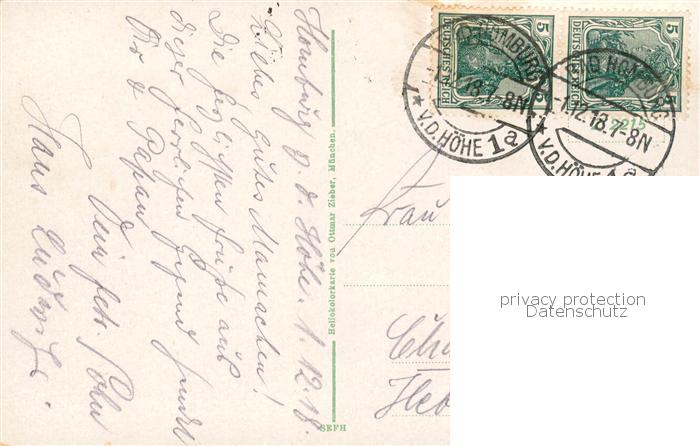 Homburg v. d. Höhe. 1. 12. 18.
Liebes gutes Mamachen!
Die herzlichsten Grüße aus
dieser herrlichen Gegend sendet
Dir & Papan
Dein
Sohn
Hans Ludwig.
Heliokolorkarte von Ottmar Zieber, München.
SEFH
5
DEUTSCHES REICH
5
DEUTSCHES REICH
HOMBURG
7-8N
* V.D. HÖHE 1a
HOMBURG
1.12.18.7-8N
* V.D. HÖHE
2215
Frau
privacy protection
Datenschutz